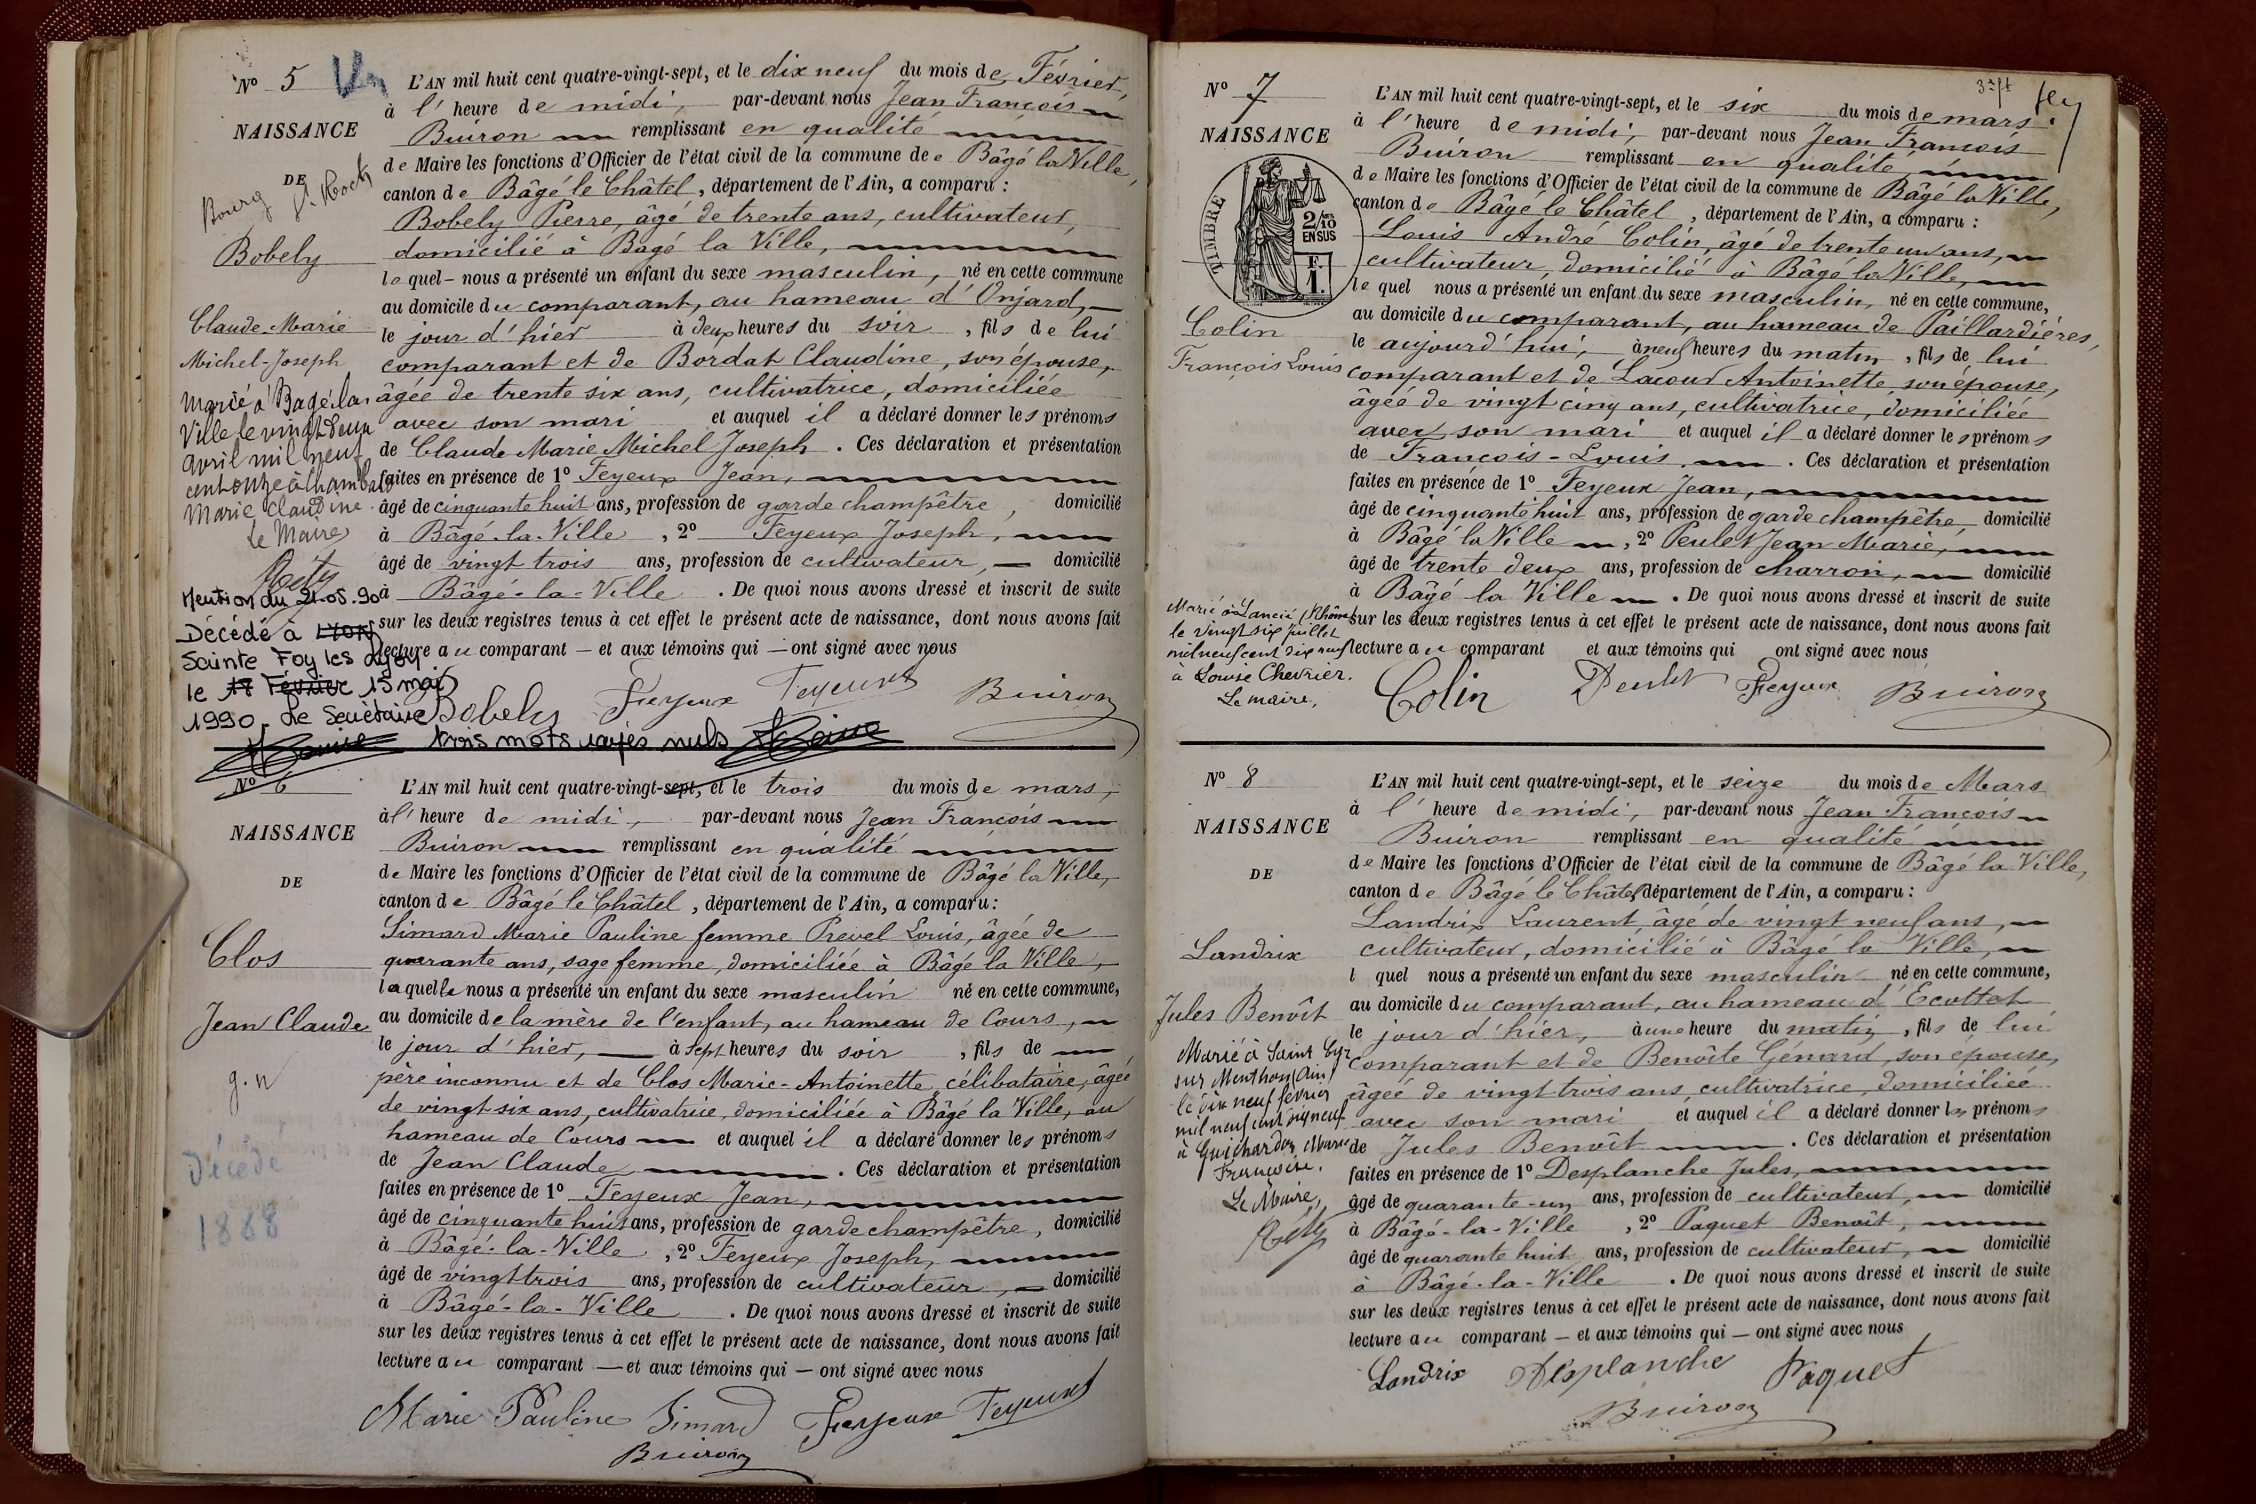 N° 5
NAISSANCE
DE
Bourg
Bobely
Claude-Marie
Michel-Joseph
Marié à Bagé-la-
Ville le vingt deux
avril mil neuf
cent onze à Chambard
Marie Claudine.
Le Maire
Mention du 21.05.90
Décédé à Lyon
Sainte Foy les Lyon
le 18 Février 15 mai
1990. Le Secrétaire
trois mots rayés nuls
L'AN mil huit cent quatre-vingt-sept, et le dix neuf du mois de Février,
à l'heure de midi, par-devant nous Jean François
Buiron remplissant en qualité
de Maire les fonctions d'Officier de l'état civil de la commune de Bâgé la Ville,
canton de Bâgé le Châtel, département de l'Ain, a comparu :
Bobely Pierre, âgé de trente ans, cultivateur,
domicilié à Bagé la Ville,
lequel nous a présenté un enfant du sexe masculin, né en cette commune
au domicile du comparant, au hameau d'Onjard,
le jour d'hier à deux heures du soir, fils de lui
comparant et de Bordat Claudine, son épouse,
âgée de trente six ans, cultivatrice, domiciliée
avec son mari et auquel il a déclaré donner les prénoms
de Claude Marie Michel Joseph. Ces déclaration et présentation
faites en présence de 1° Feyeux Jean,
âgé de cinquante huit ans, profession de garde champêtre, domicilié
à Bâgé-la-Ville, 2° Feyeux Joseph,
âgé de vingt trois ans, profession de cultivateur, domicilié
à Bâgé-la-Ville. De quoi nous avons dressé et inscrit de suite
sur les deux registres tenus à cet effet le présent acte de naissance, dont nous avons fait
lecture au comparant — et aux témoins qui — ont signé avec nous
Bobely Feyeux Feyeux Buiron
N° 6
NAISSANCE
DE
Clos
Jean Claude
g. n
Décédé
1888
L'AN mil huit cent quatre-vingt-sept, et le trois du mois de mars,
à l'heure de midi, par-devant nous Jean François
Buiron remplissant en qualité
de Maire les fonctions d'Officier de l'état civil de la commune de Bâgé la Ville,
canton de Bâgé le Châtel, département de l'Ain, a comparu :
Simard Marie Pauline femme Prevel Louis, âgée de
quarante ans, sage femme, domiciliée à Bâgé la Ville,
laquelle nous a présenté un enfant du sexe masculin né en cette commune,
au domicile de la mère de l'enfant, au hameau de Cours,
le jour d'hier, à sept heures du soir, fils de
père inconnu et de Clos Marie-Antoinette, célibataire, âgée
de vingt-six ans, cultivatrice, domiciliée à Bâgé la Ville, au
hameau de Cours et auquel il a déclaré donner les prénoms
de Jean Claude. Ces déclaration et présentation
faites en présence de 1° Feyeux Jean,
âgé de cinquante huit ans, profession de garde champêtre, domicilié
à Bâgé-la-Ville, 2° Feyeux Joseph,
âgé de vingt trois ans, profession de cultivateur, domicilié
à Bâgé-la-Ville. De quoi nous avons dressé et inscrit de suite
sur les deux registres tenus à cet effet le présent acte de naissance, dont nous avons fait
lecture au comparant — et aux témoins qui — ont signé avec nous
Marie Pauline Simard Feyeux Feyeux
Buiron
N° 7
NAISSANCE
TIMBRE
2/10
EN SUS
F.
1.
Colin
François Louis
Marié à Lancié (Rhône)
le vingt six Juillet
mil neuf cent dix neuf
à Louise Chevrier.
Le maire,
L'AN mil huit cent quatre-vingt-sept, et le six du mois de mars
à l'heure de midi, par-devant nous Jean François
Buiron remplissant en qualité
de Maire les fonctions d'Officier de l'état civil de la commune de Bâgé la Ville,
canton de Bâgé le Châtel, département de l'Ain, a comparu :
Louis André Colin, âgé de trente un ans,
cultivateur, domicilié à Bâgé la Ville,
lequel nous a présenté un enfant du sexe masculin, né en cette commune,
au domicile du comparant, au hameau de Paillardières,
le aujourd'hui, à neuf heures du matin, fils de lui
comparant et de Lacour Antoinette, son épouse,
âgée de vingt cinq ans, cultivatrice, domiciliée
avec son mari et auquel il a déclaré donner les prénoms
de François-Louis. Ces déclaration et présentation
faites en présence de 1° Feyeux Jean,
âgé de cinquante huit ans, profession de garde champêtre domicilié
à Bâgé la Ville, 2° Peulet Jean Marie,
âgé de trente deux ans, profession de charron, domicilié
à Bâgé la Ville. De quoi nous avons dressé et inscrit de suite
sur les deux registres tenus à cet effet le présent acte de naissance, dont nous avons fait
lecture au comparant et aux témoins qui ont signé avec nous
Colin Peulet Feyeux Buiron
N° 8
NAISSANCE
DE
Landrix
Jules Benoît
Marié à Saint Cyr
sur Menthon (Ain)
le dix neuf février
mil neuf cent dix neuf
à Guichardon Marie
Françoise.
Le Maire,
L'AN mil huit cent quatre-vingt-sept, et le seize du mois de Mars
à l'heure de midi, par-devant nous Jean François
Buiron remplissant en qualité
de Maire les fonctions d'Officier de l'état civil de la commune de Bâgé la Ville,
canton de Bâgé le Châtel, département de l'Ain, a comparu :
Landrix Laurent, âgé de vingt neuf ans,
cultivateur, domicilié à Bâgé la Ville,
l quel nous a présenté un enfant du sexe masculin né en cette commune,
au domicile du comparant, au hameau d'Ecottet
le jour d'hier, à une heure du matin, fils de lui
comparant et de Benoîte Génard, son épouse,
âgée de vingt trois ans, cultivatrice, domiciliée
avec son mari et auquel il a déclaré donner les prénoms
de Jules Benoît. Ces déclaration et présentation
faites en présence de 1° Desplanche Jules,
âgé de quarante-un ans, profession de cultivateur, domicilié
à Bâgé-la-Ville, 2° Paquet Benoît,
âgé de quarante huit ans, profession de cultivateur, domicilié
à Bâgé-la-Ville. De quoi nous avons dressé et inscrit de suite
sur les deux registres tenus à cet effet le présent acte de naissance, dont nous avons fait
lecture au comparant — et aux témoins qui — ont signé avec nous
Landrix Desplanche Paquet
Buiron